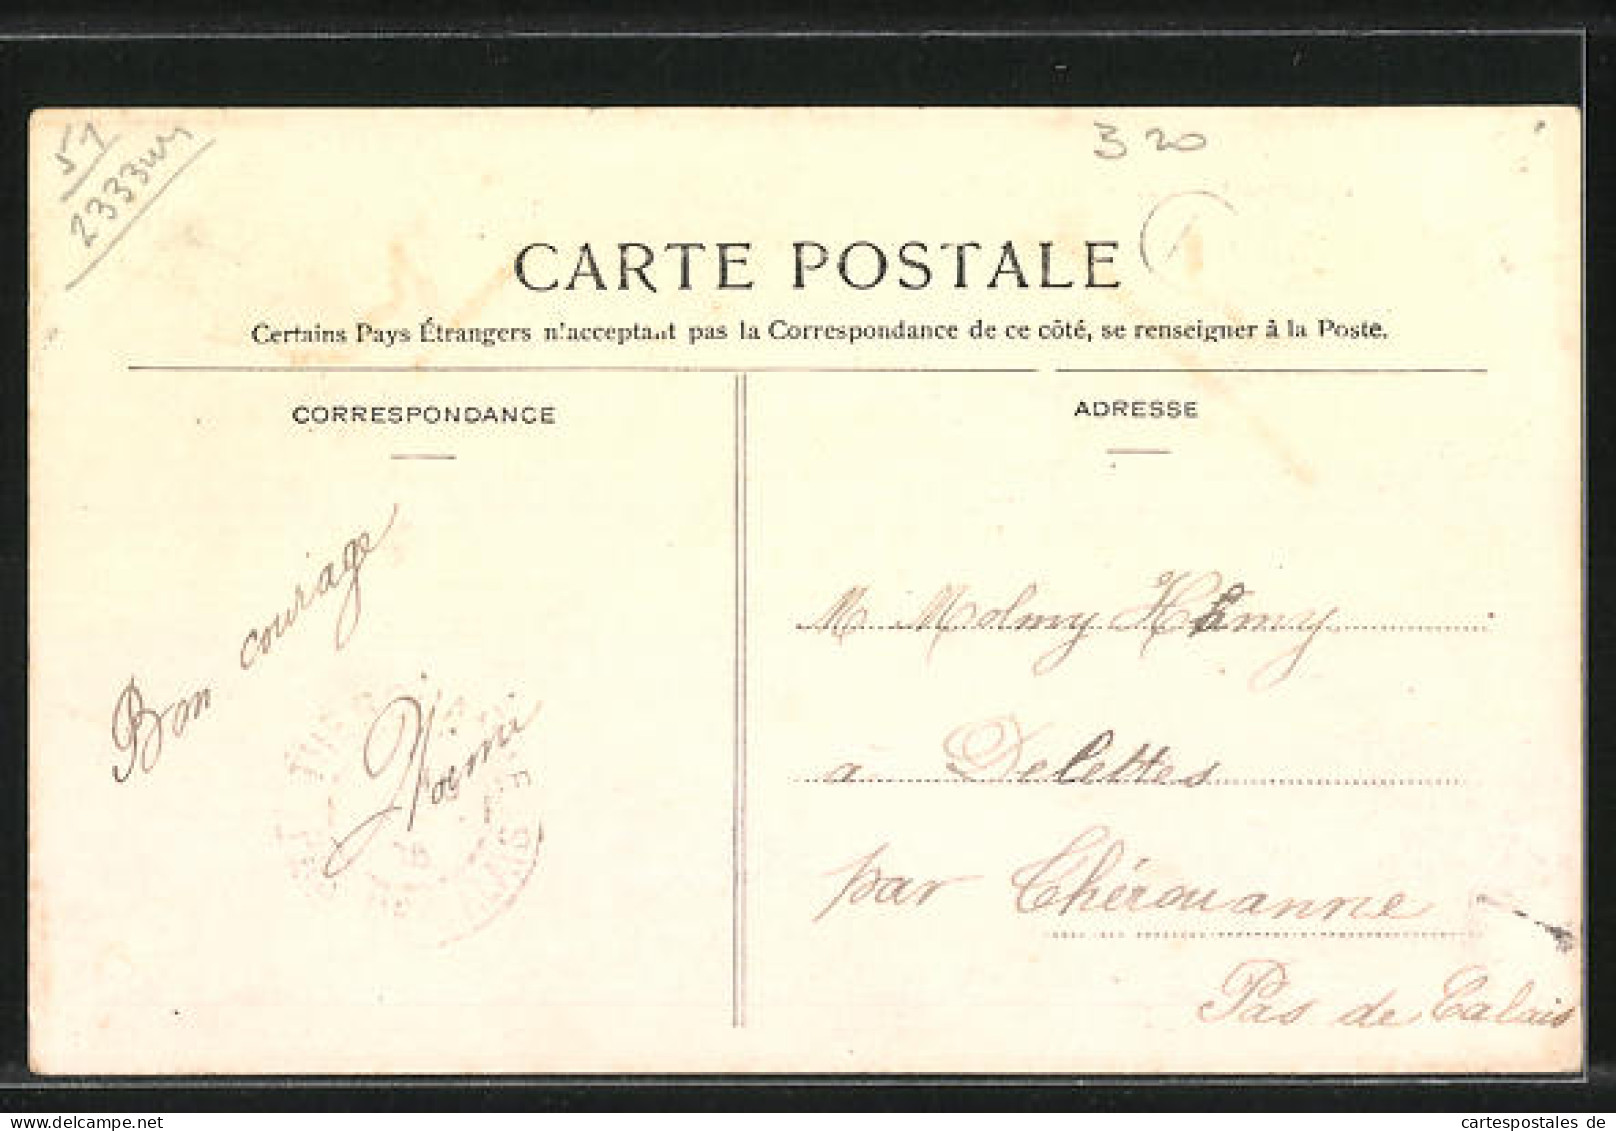 51
2333
3 20
CARTE POSTALE
Certains Pays Étrangers n'acceptant pas la Correspondance de ce côté, se renseigner à la Poste.
CORRESPONDANCE
ADRESSE
Bon courage
M Molmy Hamy
a Delettes
par Thérouanne
Pas de Calais
cartespostales de